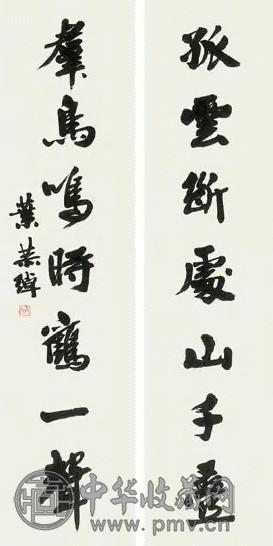 孤雲斷處山千疊
羣鳥鳴時鶴一聲
葉恭綽
中华收藏网
www.pmv.cn